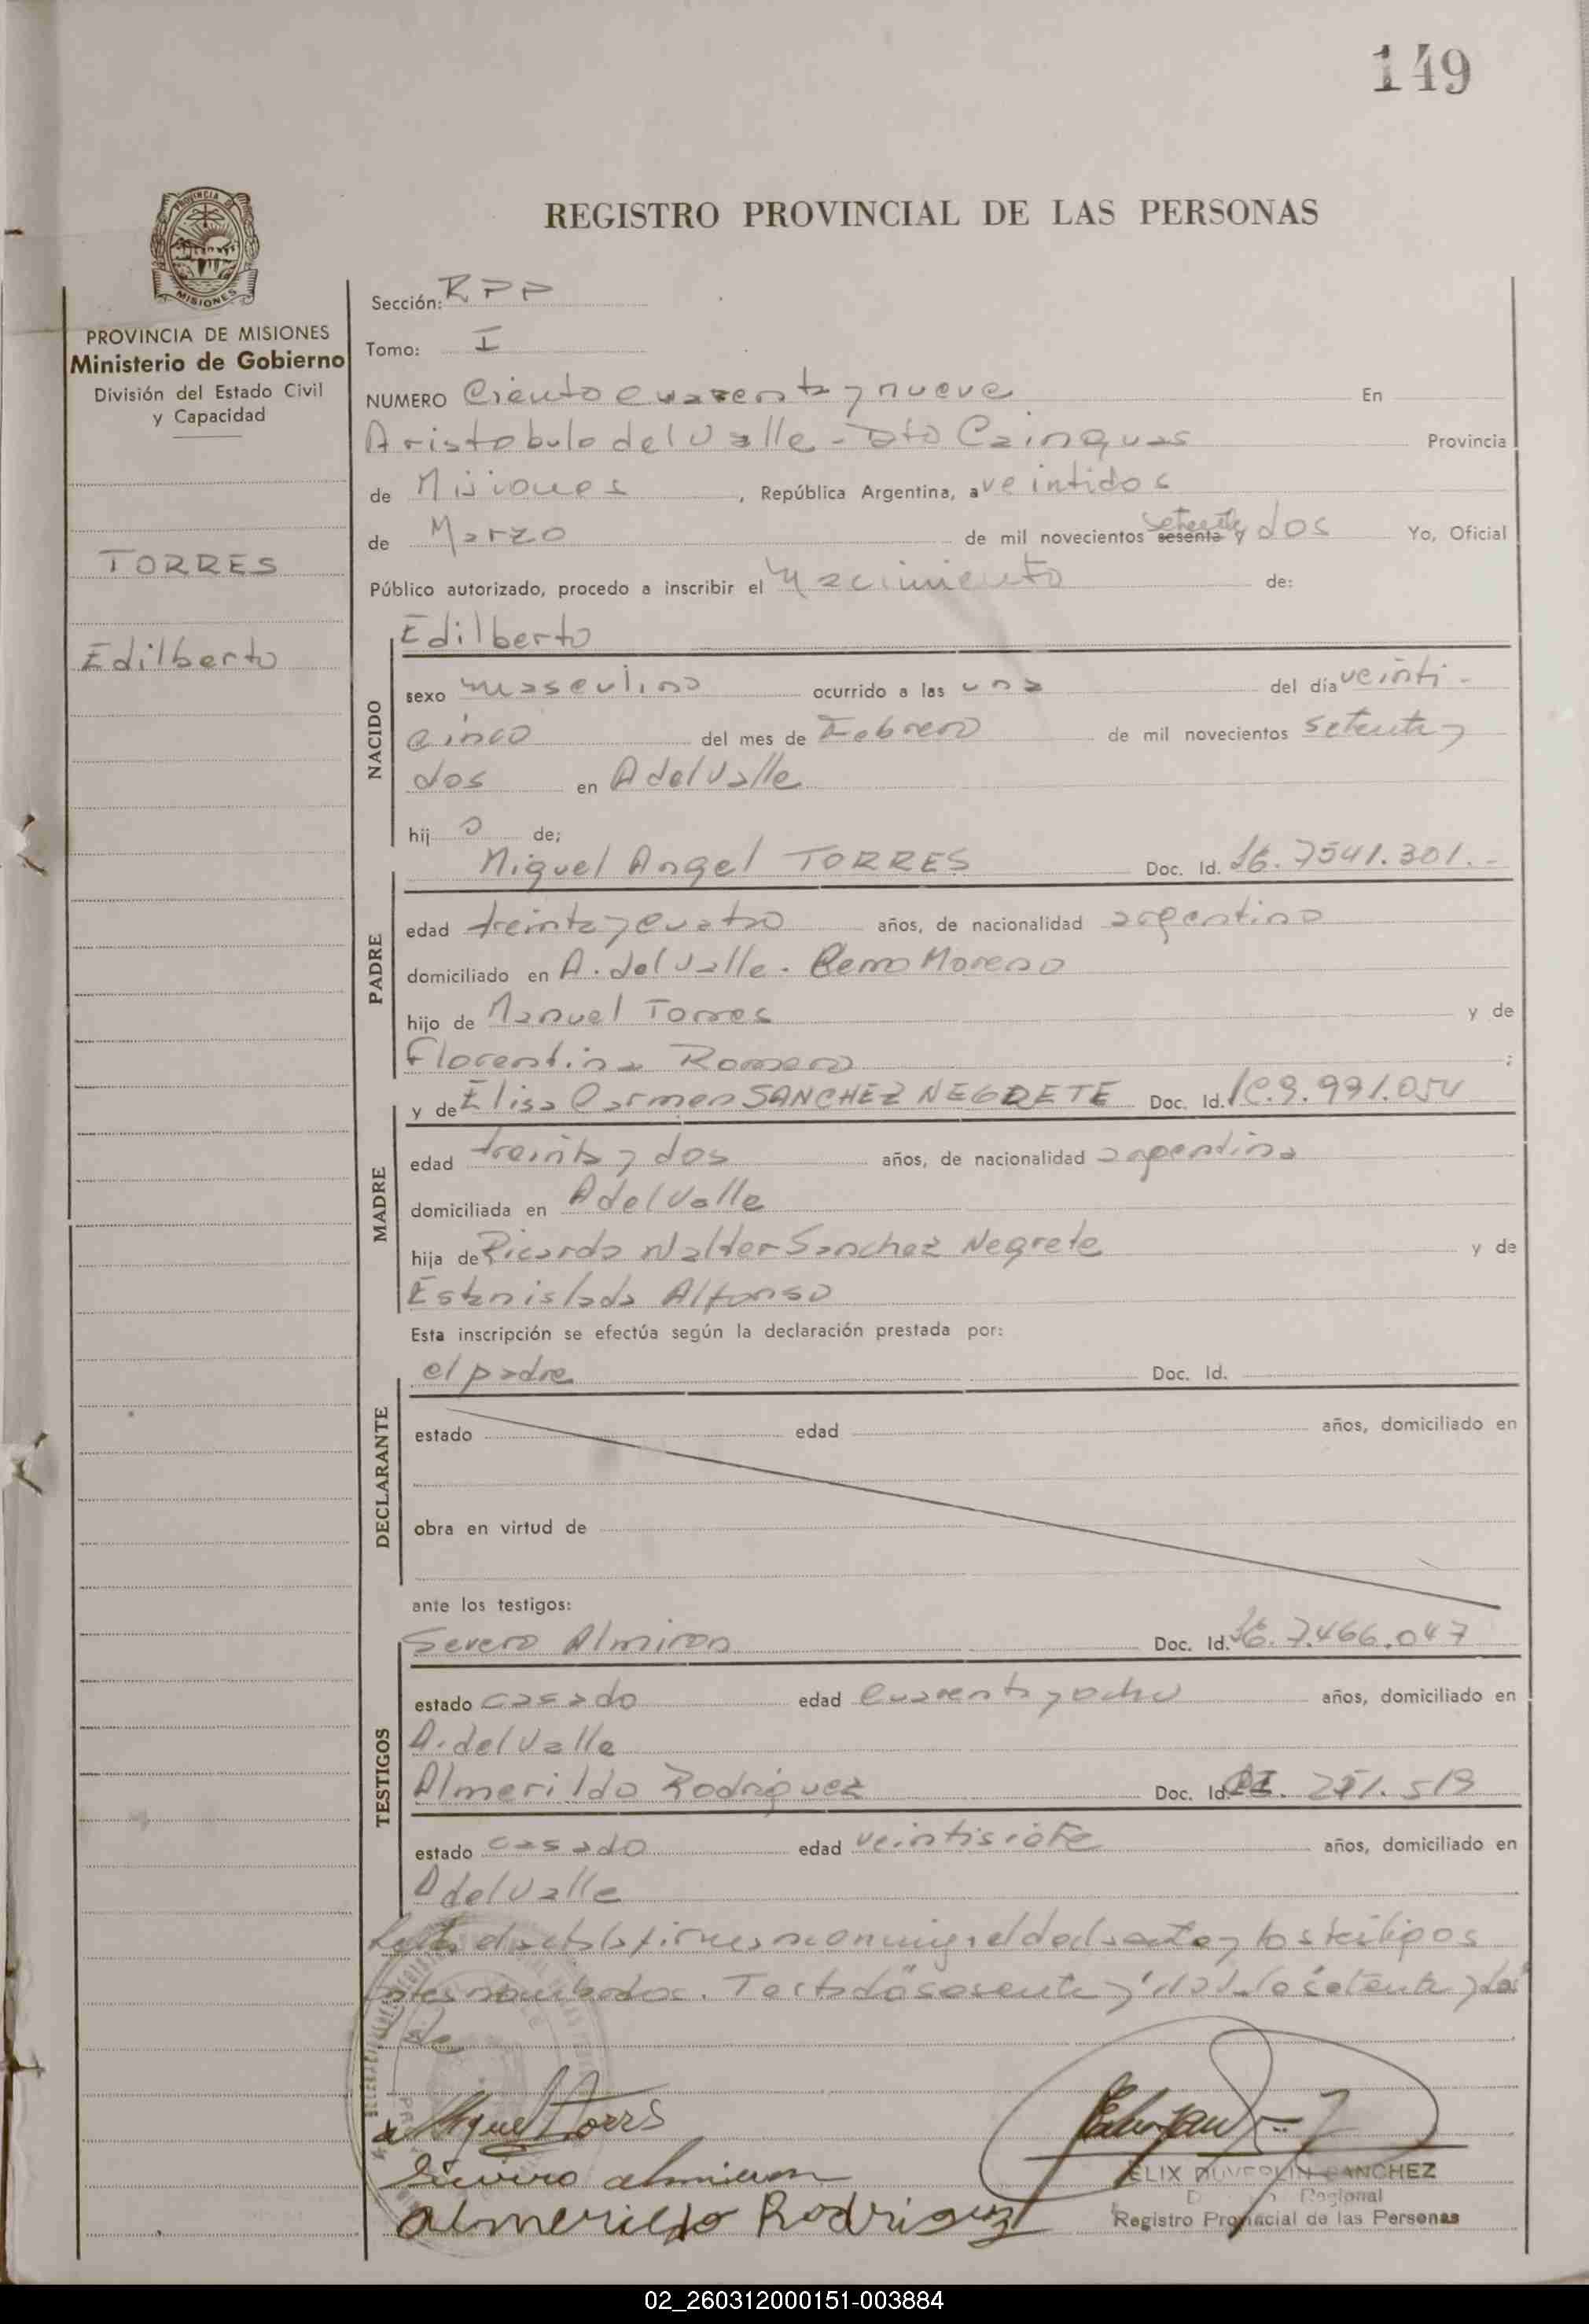 149
REGISTRO PROVINCIAL DE LAS PERSONAS
PROVINCIA DE MISIONES
Ministerio de Gobierno
División del Estado Civil
y Capacidad
TORRES
Edilberto
Sección: RPP
Tomo: I
NUMERO Ciento cuarenta y nueve En
Aristobulo del Valle - Dto Cainguas Provincia
de Misiones, República Argentina, a veintidos
de Marzo de mil novecientos sesenta setenta y dos Yo, Oficial
Público autorizado, procedo a inscribir el Nacimiento de:
NACIDO
Edilberto
sexo masculino ocurrido a las una del día veinti-
cinco del mes de Febrero de mil novecientos setenta y
dos en A del Valle
hij o de;
PADRE
Miguel Angel TORRES Doc. Id. M. 7541.301.-
edad treinta y cuatro años, de nacionalidad argentino
domiciliado en A. del Valle. Cerro Moreno
hijo de Manuel Torres y de
Florentina Romero ;
MADRE
y de Elisa Carmen SANCHEZ NEGRETE Doc. Id. 9.991.054
edad treinta y dos años, de nacionalidad argentina
domiciliada en A del Valle
hija de Ricardo Walter Sanchez Negrete y de
Estanislada Alfonso
Esta inscripción se efectúa según la declaración prestada por:
DECLARANTE
el padre Doc. Id.
estado edad años, domiciliado en
obra en virtud de
ante los testigos:
TESTIGOS
Severo Almiron Doc. Id. 7.466.047
estado casado edad cuarenta y ocho años, domiciliado en
A. del Valle
Almerildo Rodriguez Doc. Id. CI. 519
estado casado edad veintisiete años, domiciliado en
A del Valle
Leida el acta la firman conmigo el declarante y los testigos
antes nombrados. Testado "sesenta y" vale setenta y dos
Miguel Torres
Severo almiron
almerildo Rodriguez
FELIX DUVERLIN SANCHEZ
Regional
Registro Provincial de las Personas
02_260312000151-003884